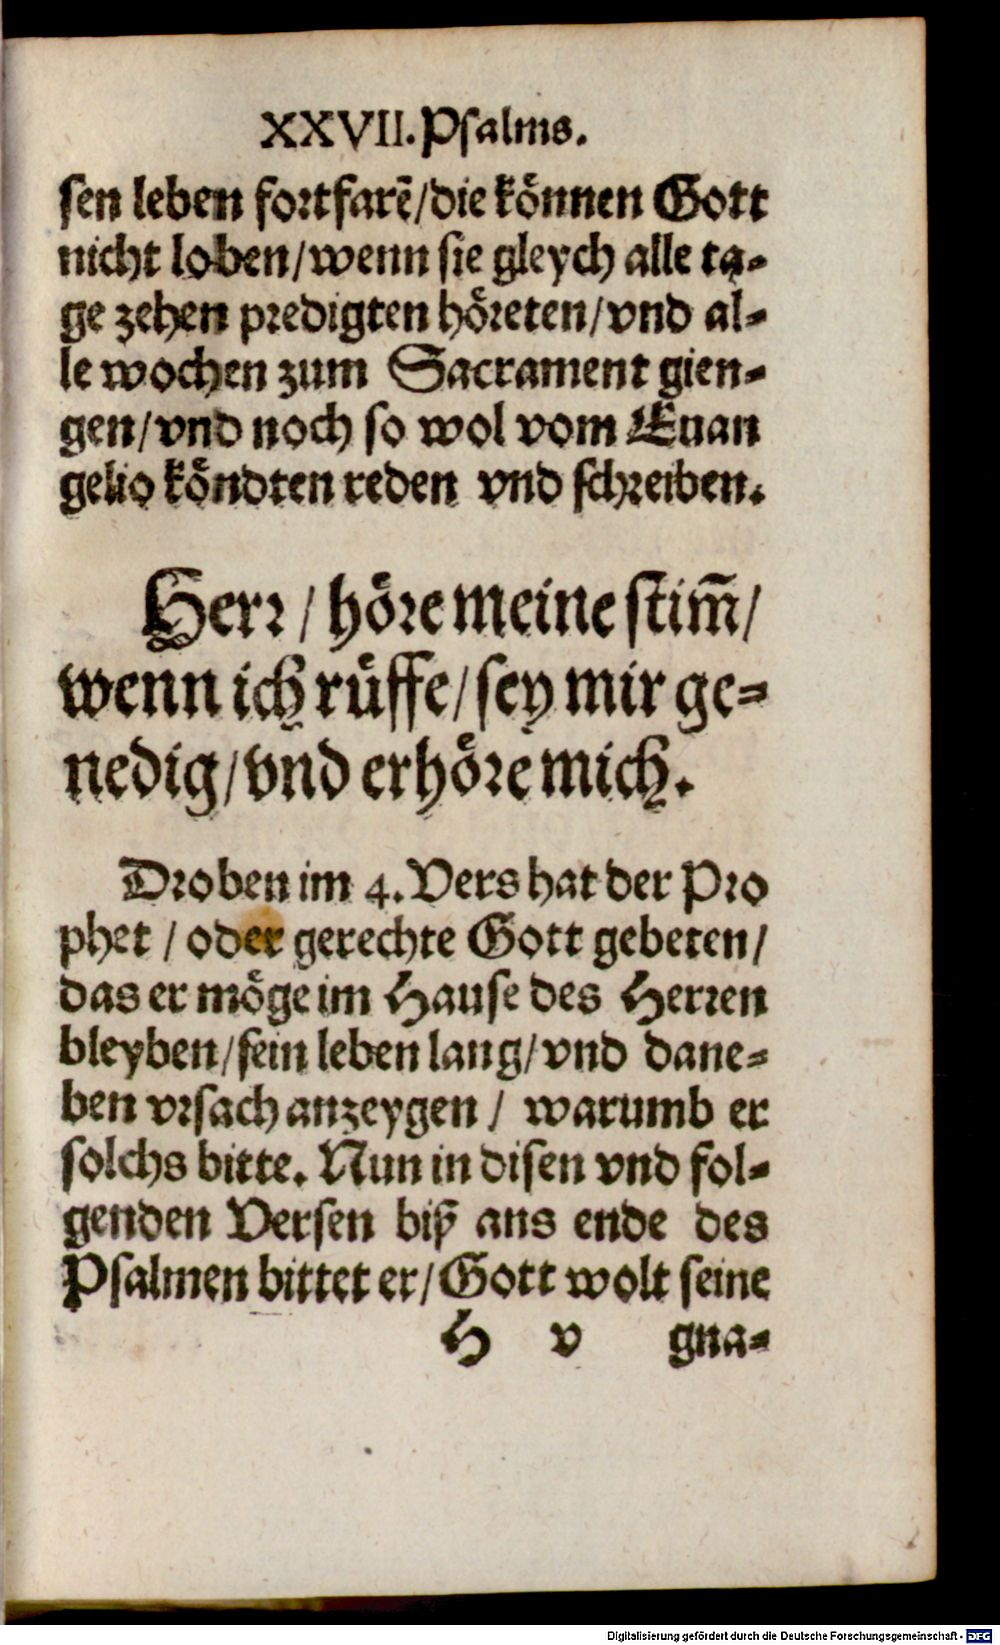 XXVII. Psalms.
sen leben fortfarẽ/die können Gott
nicht loben/wenn sie gleych alle ta-
ge zehen predigten höreten/vnd al-
le wochen zum Sacrament gien-
gen/vnd noch so wol vom Euan
gelio köndten reden vnd schreiben.
Herr / höre meine stim̃/
wenn ich rüffe/sey mir ge-
nedig/vnd erhöre mich.
Droben im 4. Vers hat der Pro
phet / oder gerechte Gott gebeten/
das er möge im Hause des Herren
bleyben/sein leben lang/vnd dane-
ben vrsach anzeygen / warumb er
solchs bitte. Nun in disen vnd fol-
genden Versen biß ans ende des
Psalmen bittet er/Gott wolt seine
H v gna-
Digitalisierung gefördert durch die Deutsche Forschungsgemeinschaft - DFG